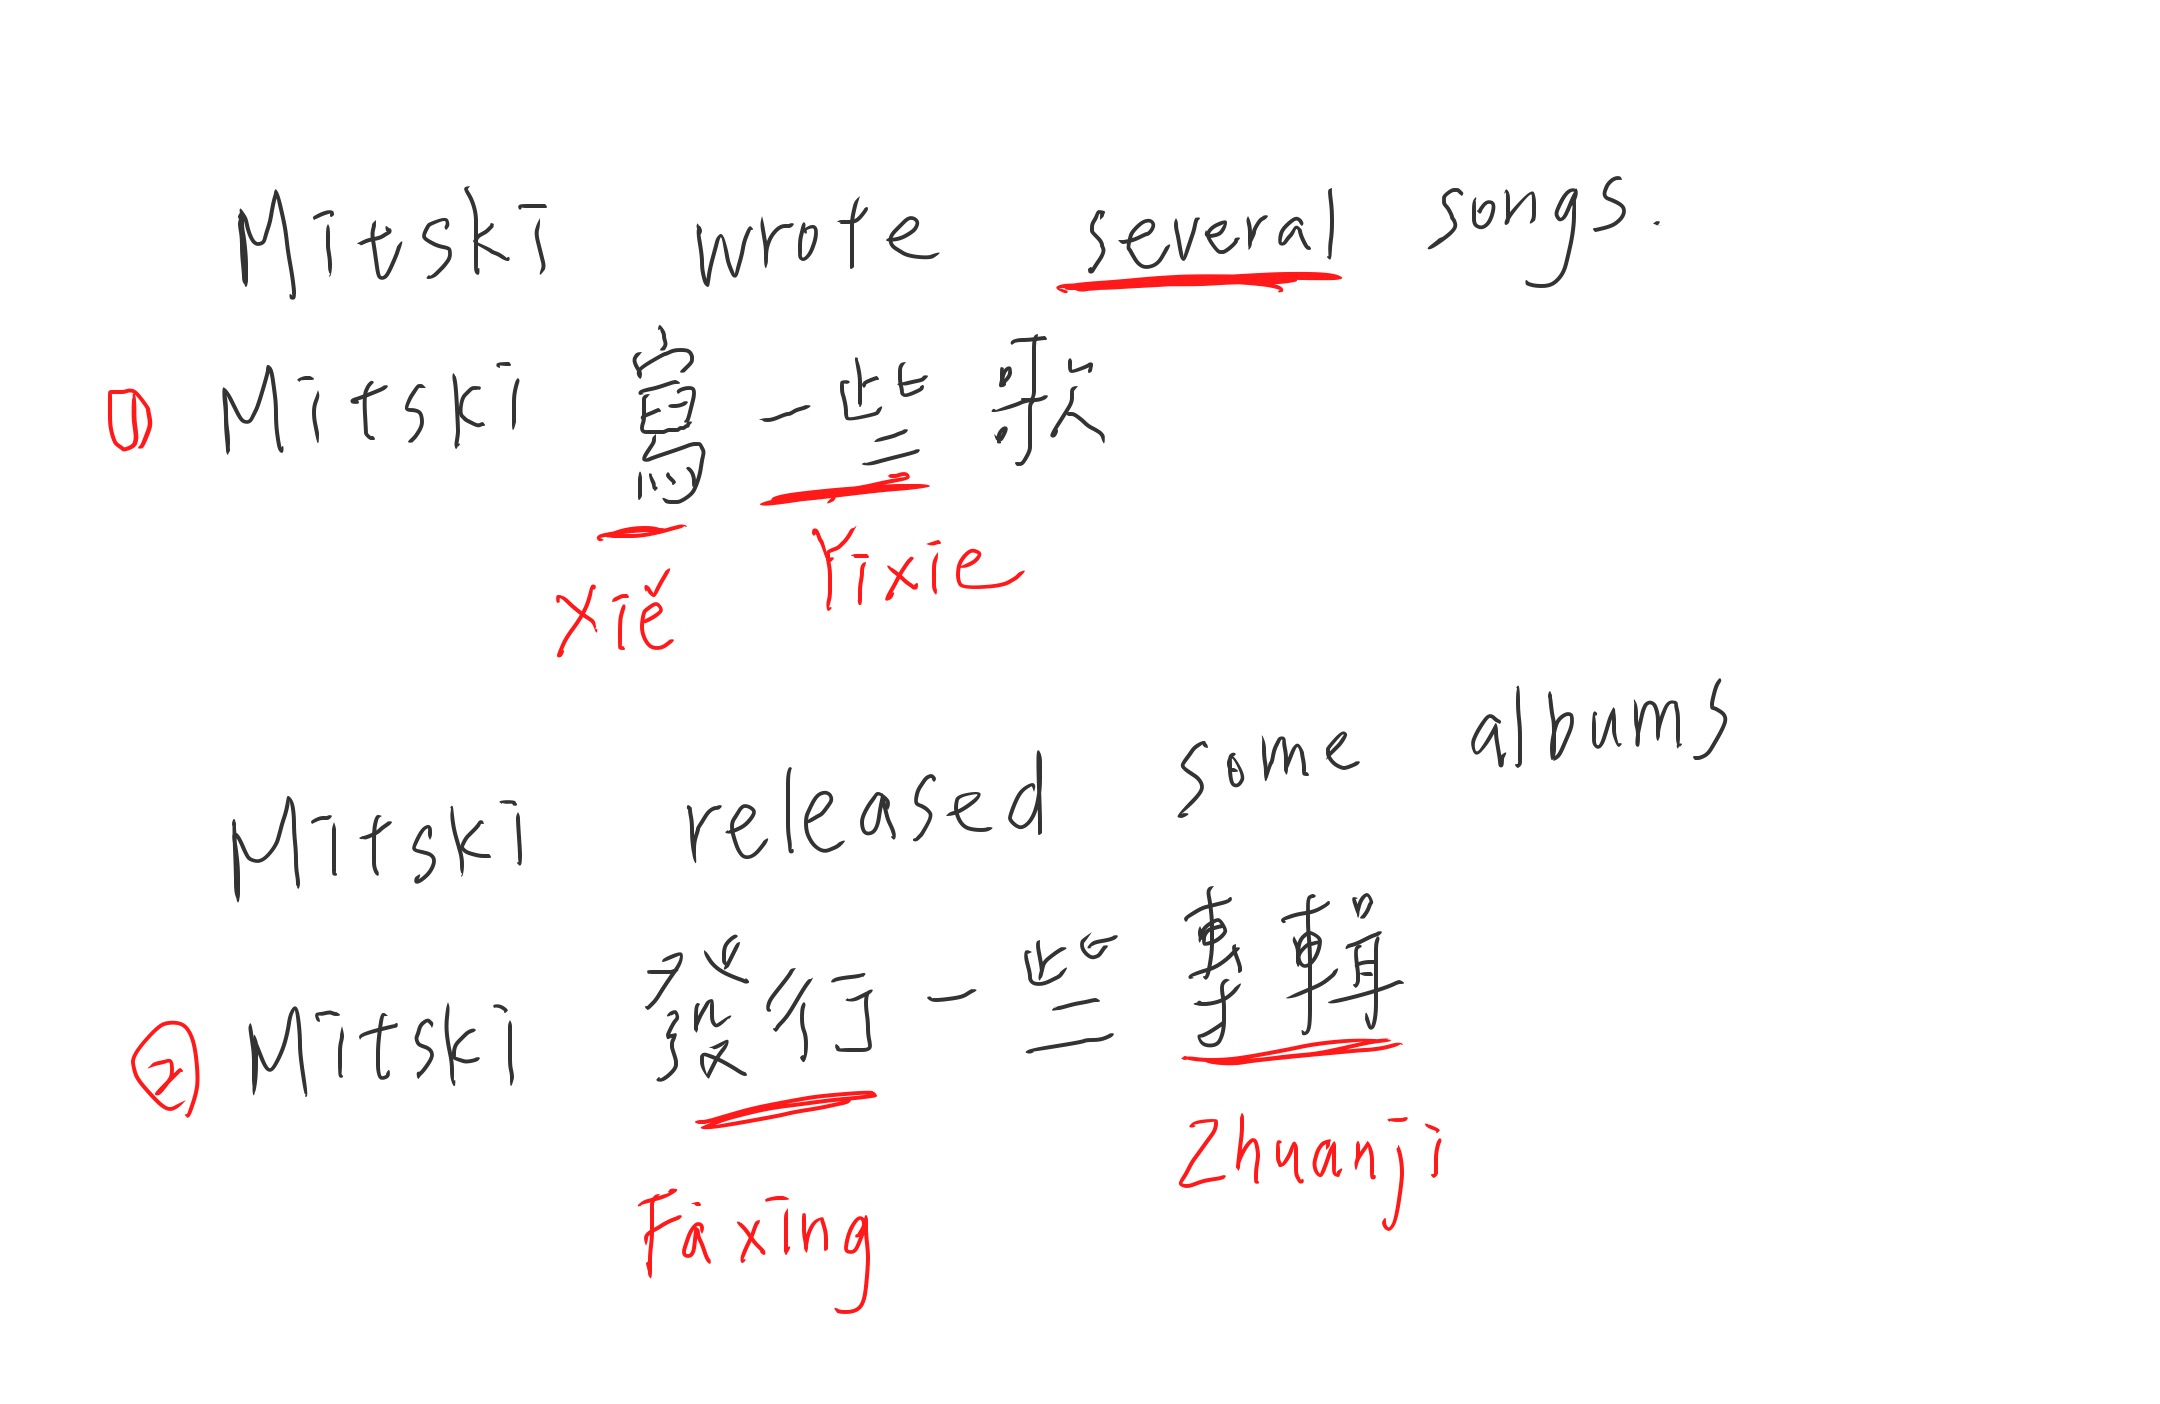 Mitski wrote several songs.
① Mitski 寫一些歌
Xiě Yixie
Mitski released some albums
② Mitski 發行一些專輯
Faxing Zhuanji